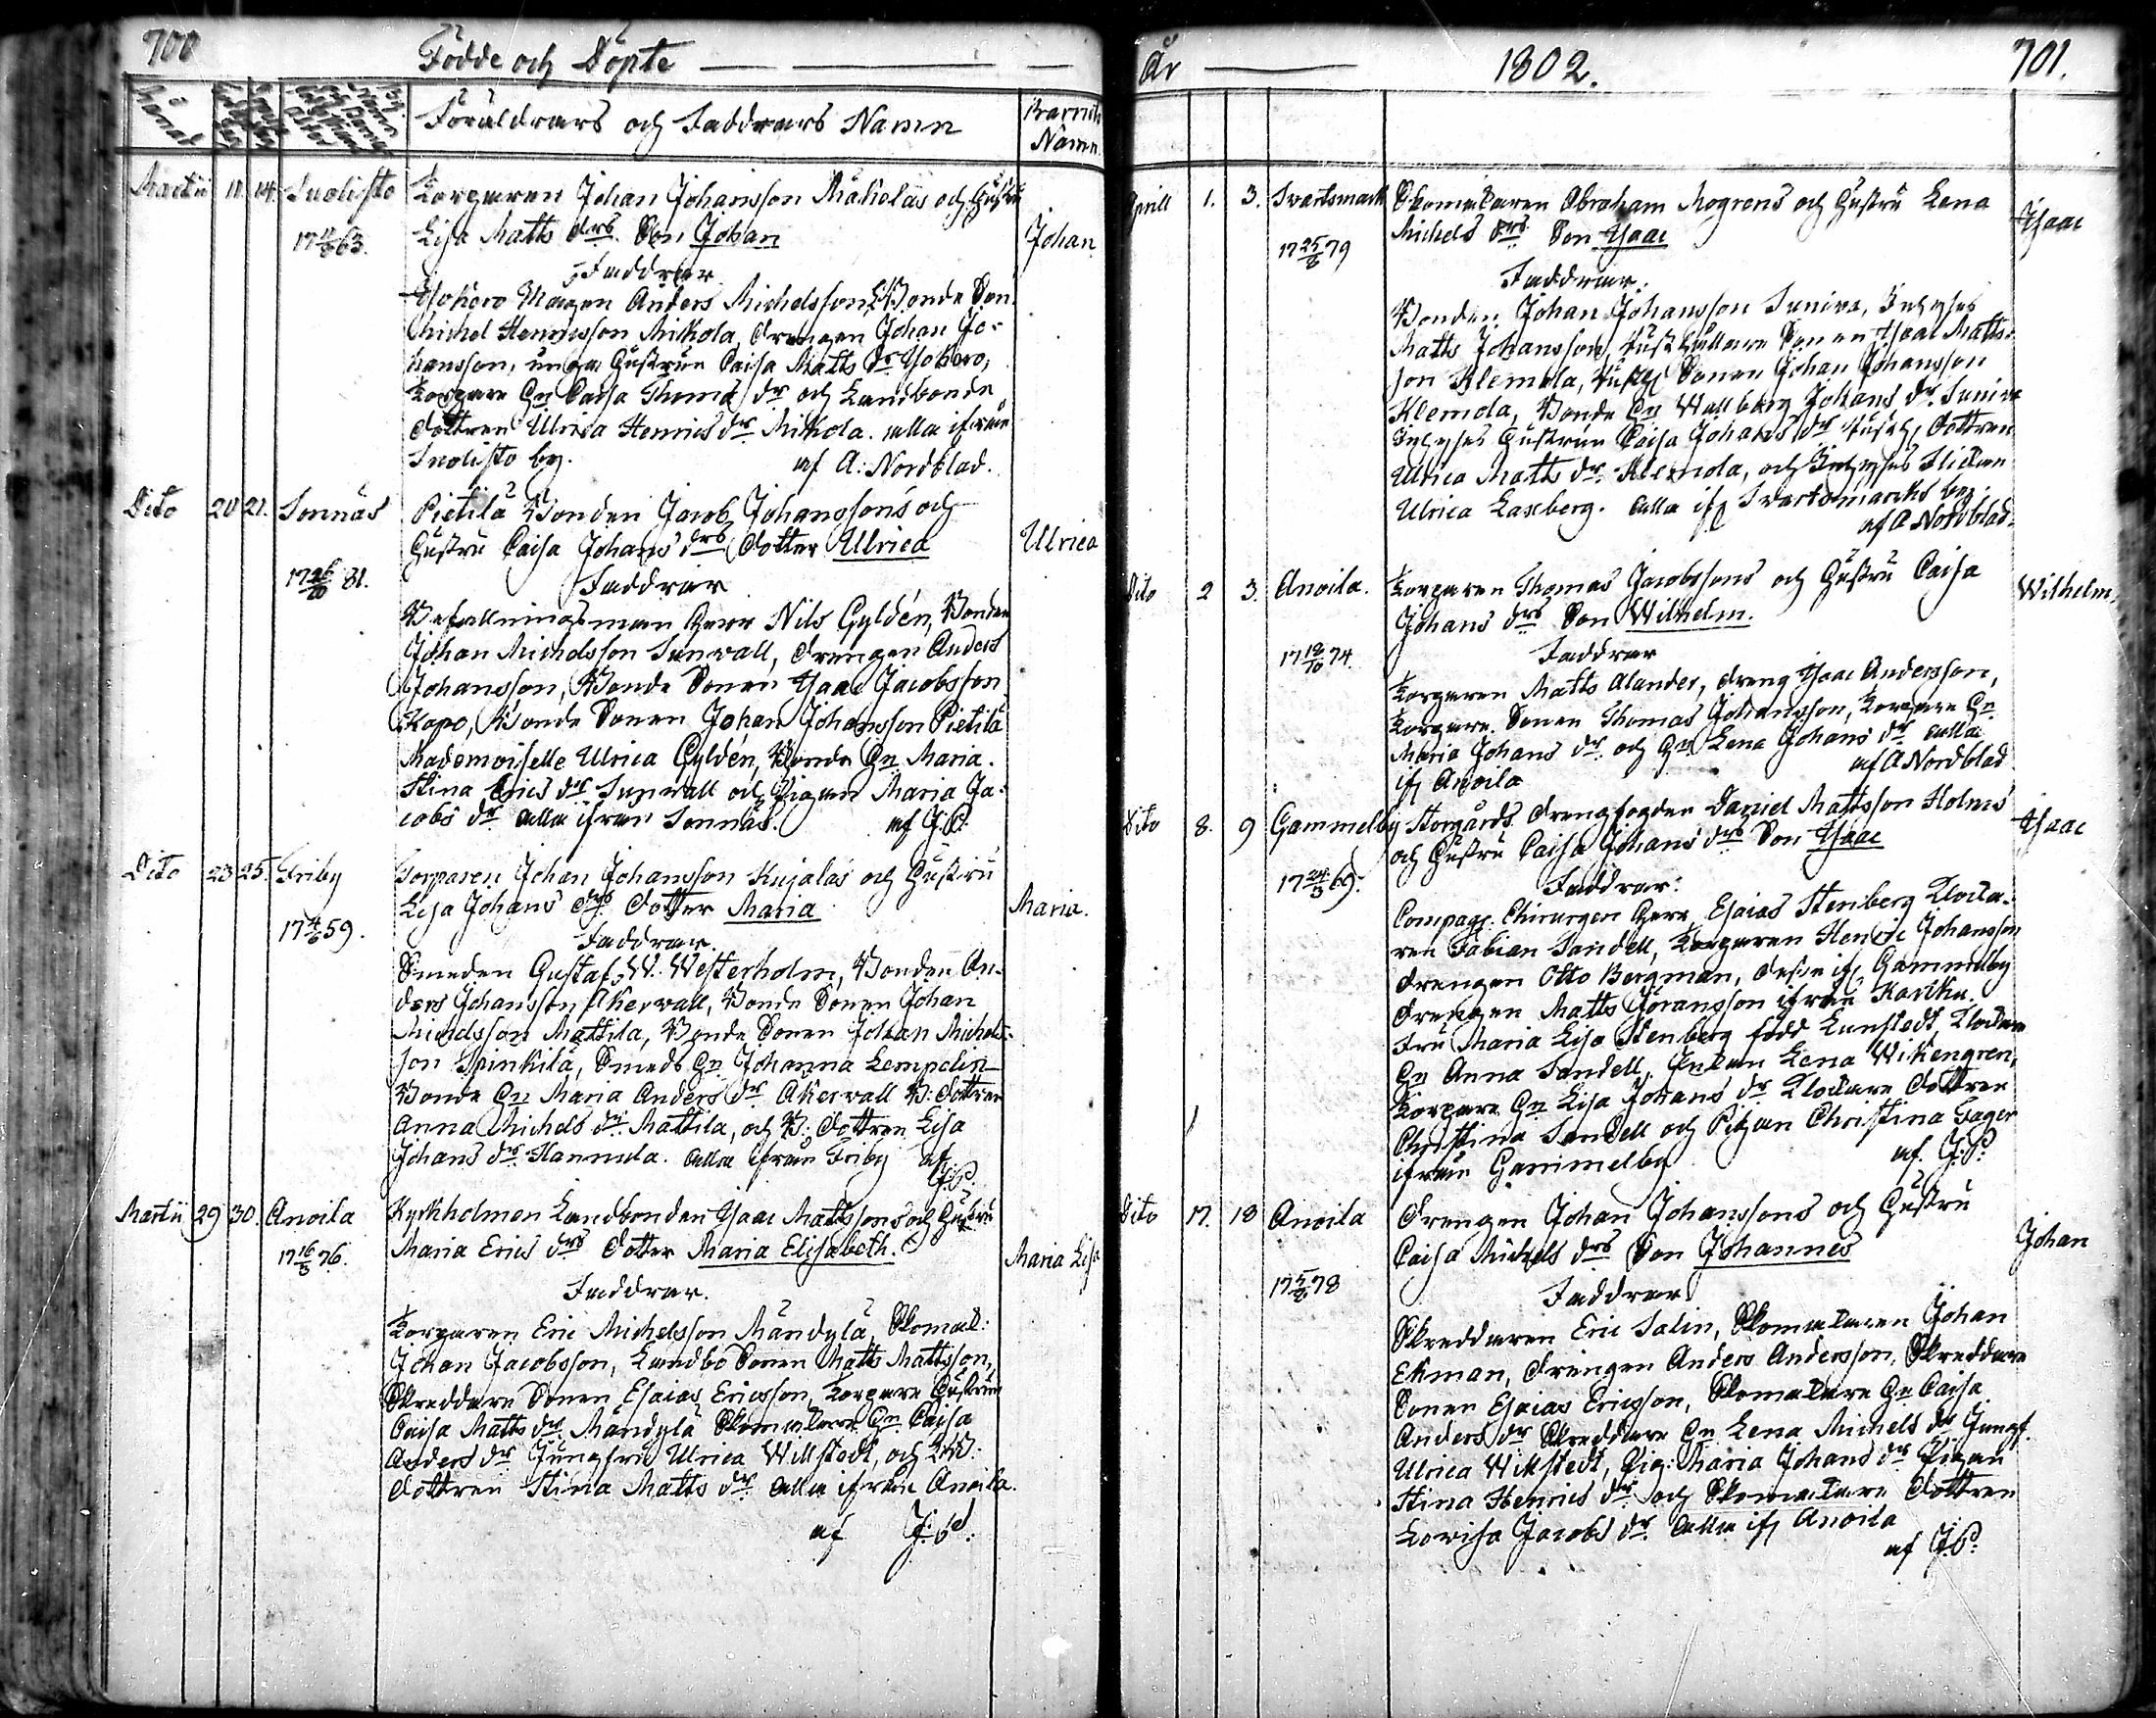 700
Födde och Döpte
Föräldrars och Faddrars Namn
Barnets
Namn.
Martii 11. 14. Suolisto Torparen Johan Johansson Mäkeläs och Hustru
17 63. Lisa Matts drs Son Johan Johan
Faddrar
Anders Michelsson, Bonde Son.
Michel Henricsson Mikola, Drängen Johan Jo-
hansson, unga Hustrun Caisa Matts dr
Torpare Hn Caisa Thomas dr och Landbonde
dottren Ulrica Henrics dr Mikola. alla ifrån
Suolisto by. af A: Nordblad.
Dito 20 21. Sonnäs Pietilä Bonden Jacob Johanssons och
Hustru Caisa Johans drs Dotter Ulrica Ulrica
17 26/10 81. Faddrar
Befallningsman Herr Nils Gyldén, Bonden
Johan Michelsson Sunvall, Drängen Anders
Johansson, Bonde Sonen Isaac Jacobsson
Kapo, Bonde Sonen Johan Johansson Pietilä
Mademoiselle Ulrica Gyldén, Bonde Hn Maria
Stina Erics dr Sunvall och Pigan Maria Ja-
cobs dr alla ifrån Sonnäs. af J:P:
Dito 23 25. Friby Torparen Johan Johansson Kujalas och Hustru
Lisa Johans drs Dotter Maria Maria.
17 59. Faddrar.
Smeden Gustaf W. Westerholm, Bonden An-
ders Johansson Åkervall, Bonde Sonen Johan
Michelsson Mattila, Bonde Sonen Johan Michels-
son Spinkilä, Smeds Hn Johanna Lempelin
Bonde Hn Maria Anders dr Åkervall B: dottren
Anna Michels dr Mattila, och B: dottren Lisa
Johans dr Hannula. alla ifrån Friby af
J:P:
Martii 29 30. Anoila Kyrkholmen Landbonden Isaac Mattssons och Hustru
17 16/3 76. Maria Erics drs Dotter Maria Elisabeth. Maria Lisa
Faddrar.
Torparen Eric Michelsson Mändylä, Skomak:
Johan Jacobsson, Landbo Sonen Matts Mattsson,
Skreddare Sonen Esaias Ericsson, Torpare Hustrun
Caisa Matts dr Mändylä Skomakare Hn Caisa
Anders dr Jungfru Ulrica Willstedt, och
dottren Stina Matts dr alla ifrån Anoila.
af J:P:
År 1802. 701.
Aprill 1. 3. Svartsmark Skomakaren Abraham Mogrens och Hustru Lena
17 25/8 79 Michels drs Son Isaac Isaac
Faddrar:
Bonden Johan Johansson Suniva, Inhyses
Matts Johansson, Sonen Isaac Matts-
son Klemola, Sonen Johan Johansson
Klemola, Bonde Hn Wallborg Johans dr Suniva
Inhyses Hustrun Caisa Johans dr dottren
Ulrica Matts dr Klemola, och Inhyses Flickan
Ulrica Laxberg. alla ifr Svartsmarks by.
af A Nordblad.
Dito 2 3. Anoila. Torparen Thomas Jacobssons och Hustru Caisa Wilhelm.
Johans drs Son Wilhelm.
17 18/10 74. Faddrar
Torparen Matts Alander, dreng Isaac Andersson,
Torpare Sonen Thomas Johansson, Torpare Hn
Maria Johans dr och Hn Lena Johans dr alla
ifr Anoila af A Nordblad
Dito 8. 9 Gammelby Storgårds Drengfogden Daniel Mattsson Holms
och Hustru Caisa Johans drs Son Isaac Isaac
17 24/3 69. Faddrar:
Compagn. Chirurgen Herr Esaias Stenberg Klocka-
ren Fabian Sandell, Torparen Henric Johansson
Drengen Otto Bergman, desse ifr Gammelby
Drengen Matts Göransson ifrån Kariku.
Fru Maria Lisa Stenberg född Lunstedt, Klockare
Hn Anna Sandell, Enkan Lena Wikengren,
Torpare Hn Lisa Johans dr Klockare dottren
Christina Sandell och Pigan Christina Fager
ifrån Gammelby af. J:P:
Dito 17. 18 Anoila Drengen Johan Johanssons och Hustru
Caisa Michels drs Son Johannes Johan
17 5/8 78 Faddrar
Skreddaren Eric Salin, Skomakaren Johan
Ekman, Drengen Anders Andersson, Skreddare
Sonen Esaias Ericsson, Skomakare Hn Caisa
Anders dr Skreddare Hn Lena Michels dr Jungf.
Ulrica Willstedt, Pig: Maria Johans dr Pigan
Stina Henrics dr och Skomakare Dottren
Lovisa Jacobs dr alla ifr Anoila
af J:P: